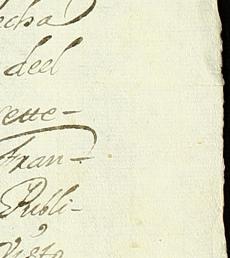 echa
deel
rette-
Fran-
Publi-
Visto